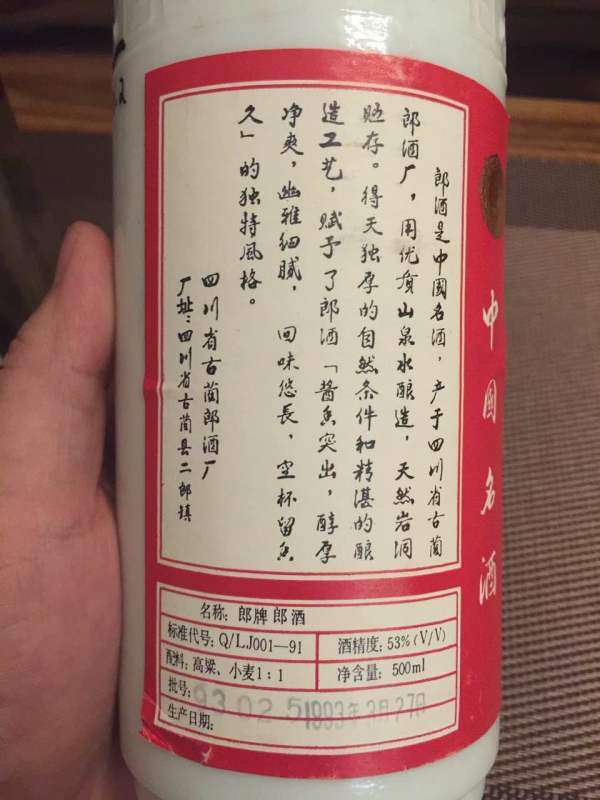 中國名酒
郎酒是中國名酒，产于四川省古蔺
郎酒厂，用优质山泉水酿造，天然岩洞
贮存。得天独厚的自然条件和精湛的酿
造工艺，赋予了郎酒「醬香突出，醇厚
净爽，幽雅细腻，回味悠長，空杯留香
久」的独特風格。
四川省古蔺郎酒厂
厂址：四川省古蔺县二郎镇
名称: 郎牌郎酒
标准代号: Q/LJ001—91 酒精度: 53%(V/V)
配料: 高粱、小麦1:1 净含量: 500ml
批号: 93025
生产日期: 1993年 月27日